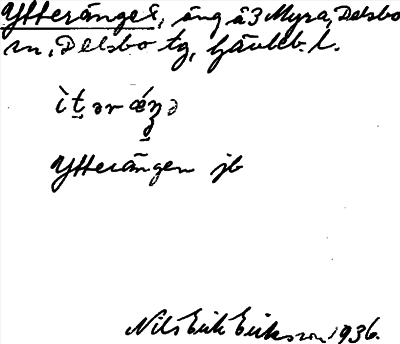 Ytterängeś, äng å 3 Myra, Delsbo
sn, Delsbo tg, Gävleb. l.
ìt̠ər ǽŋə
Ytterängen jb
Nils Erik Eriksson 1936.